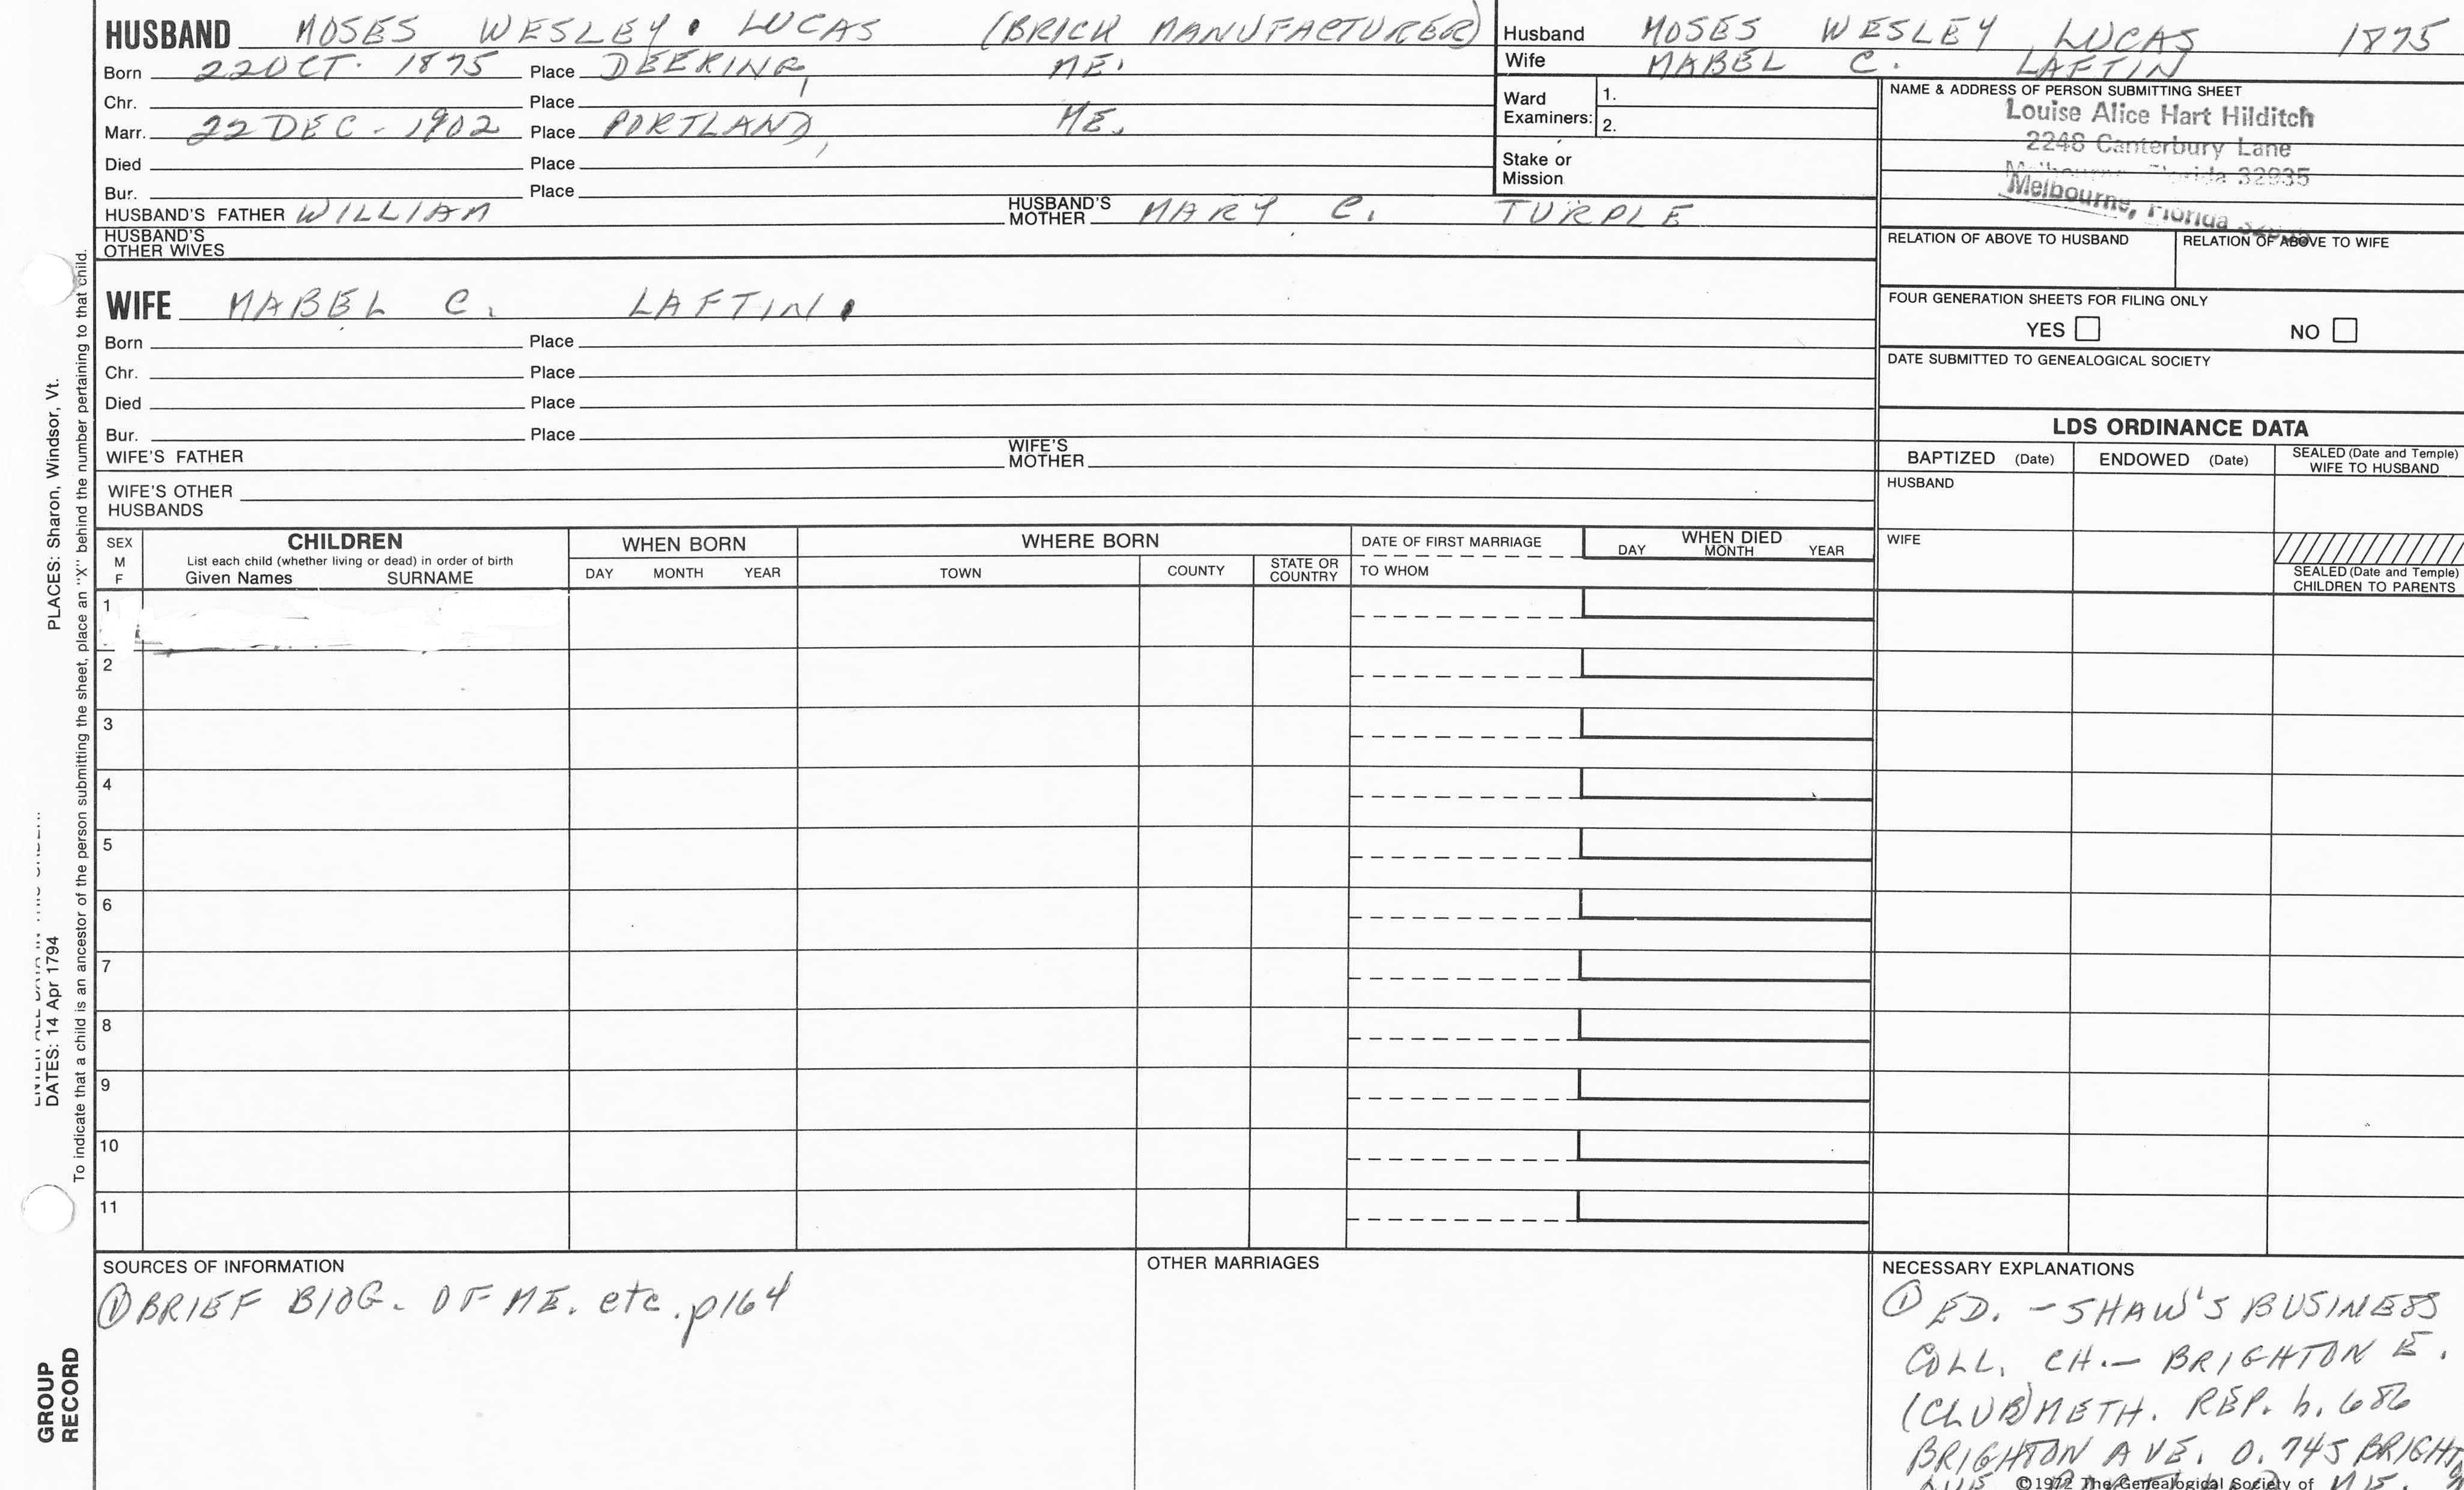 HUSBAND MOSES WESLEY. LUCAS (BRICK MANUFACTURER)
Born 22 OCT. 1875 Place DEERING, ME.
Chr. Place
Marr. 22 DEC - 1902 Place PORTLAND, ME.
Died Place
Bur. Place
HUSBAND'S FATHER WILLIAM HUSBAND'S MOTHER MARY C. TURPLE
HUSBAND'S
OTHER WIVES
WIFE MABEL C. LAFTIN.
Born Place
Chr. Place
Died Place
Bur. Place
WIFE'S FATHER WIFE'S MOTHER
WIFE'S OTHER
HUSBANDS
Husband MOSES WESLEY LUCAS 1875
Wife MABEL C. LAFTIN
Ward
Examiners:
1.
2.
Stake or
Mission
NAME & ADDRESS OF PERSON SUBMITTING SHEET
Louise Alice Hart Hilditch
2248 Canterbury Lane
32935
Melbourne, Florida
RELATION OF ABOVE TO HUSBAND RELATION OF ABOVE TO WIFE
FOUR GENERATION SHEETS FOR FILING ONLY
YES NO
DATE SUBMITTED TO GENEALOGICAL SOCIETY
LDS ORDINANCE DATA
BAPTIZED (Date) ENDOWED (Date) SEALED (Date and Temple) WIFE TO HUSBAND
HUSBAND
WIFE
SEALED (Date and Temple)
CHILDREN TO PARENTS
SEX
M
F
CHILDREN
List each child (whether living or dead) in order of birth
Given Names SURNAME
WHEN BORN
DAY MONTH YEAR
WHERE BORN
TOWN COUNTY STATE OR COUNTRY
DATE OF FIRST MARRIAGE
TO WHOM
WHEN DIED
DAY MONTH YEAR
1
2
3
4
5
6
7
8
9
10
11
SOURCES OF INFORMATION
① BRIEF BIOG. OF ME. etc. p164
OTHER MARRIAGES
NECESSARY EXPLANATIONS
① ED. - SHAW'S BUSINESS
COLL. CH.- BRIGHTON E.
(CLUB) METH. REP. h. 686
BRIGHTON AVE. O. 745
©1972 The Genealogical Society of
PLACES: Sharon, Windsor, Vt.
DATES: 14 Apr 1794
To indicate that a child is an ancestor of the person submitting the sheet, place an "X" behind the number pertaining to that child.
GROUP
RECORD